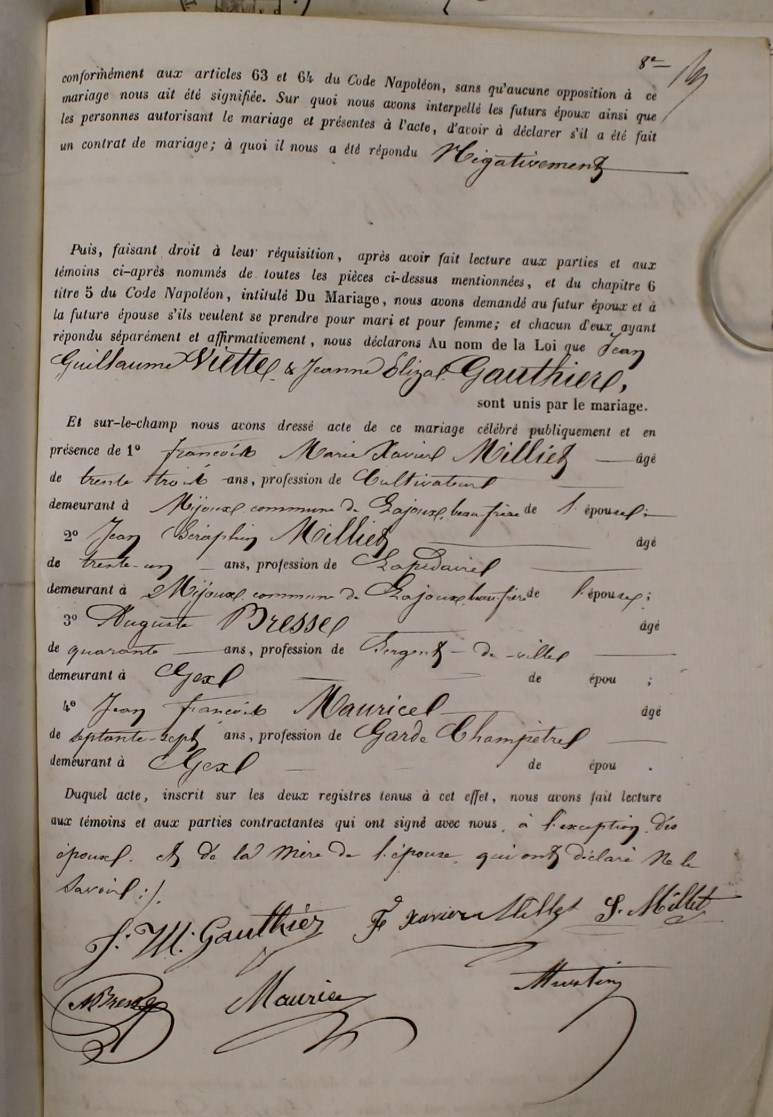 8e
conformément aux articles 63 et 64 du Code Napoléon, sans qu'aucune opposition à ce
mariage nous ait été signifiée. Sur quoi nous avons interpellé les futurs époux ainsi que
les personnes autorisant le mariage et présentes à l'acte, d'avoir à déclarer s'il a été fait
un contrat de mariage; à quoi il nous a été répondu Négativement
Puis, faisant droit à leur réquisition, après avoir fait lecture aux parties et aux
témoins ci-après nommés de toutes les pièces ci-dessus mentionnées, et du chapitre 6
titre 5 du Code Napoléon, intitulé Du Mariage, nous avons demandé au futur époux et à
la future épouse s'ils veulent se prendre pour mari et pour femme; et chacun d'eux ayant
répondu séparément et affirmativement, nous déclarons Au nom de la Loi que Jean
Guillaume Viette & Jeanne Élizat Gauthier,
sont unis par le mariage.
Et sur-le-champ nous avons dressé acte de ce mariage célébré publiquement et en
présence de 1º françois Marie Xavier Milliet âgé
de trente trois ans, profession de Cultivateur
demeurant à Mijoux commune de Lajoux, beau frère de l'épouse;
2º Jean Séraphin Milliet âgé
de trente-un ans, profession de Lapidaire
demeurant à Mijoux commune de Lajoux, beau frère de l'épouse;
3º Auguste Bresse âgé
de quarante ans, profession de Sergent-de-ville
demeurant à Gex de épou ;
4º Jean françois Maurice âgé
de septante-sept ans, profession de Garde Champêtre
demeurant à Gex de épou .
Duquel acte, inscrit sur les deux registres tenus à cet effet, nous avons fait lecture
aux témoins et aux parties contractantes qui ont signé avec nous, à l'exception des
époux et de la mère de l'épouse, qui ont déclaré ne le
savoir ;/.
J. M. Gauthier Fs Xavier Millet S. Millet
A Bresse Maurice